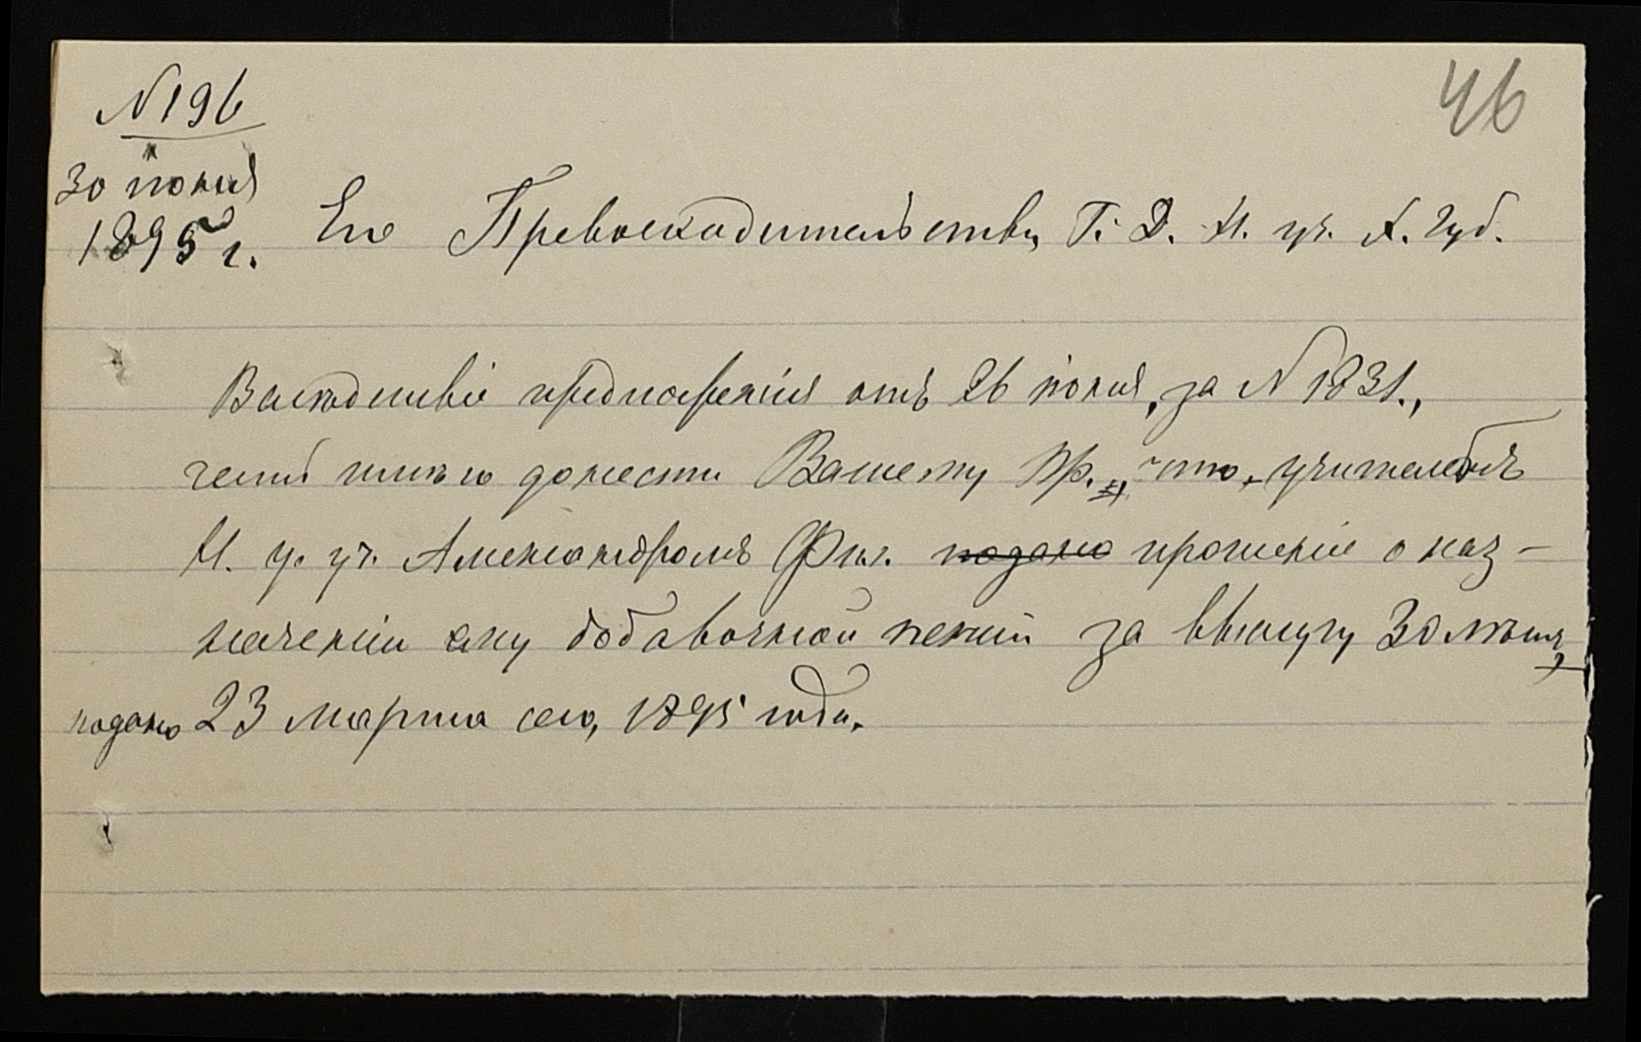 № 196
46
30 іюня
1895 г.
Его Превосходительству Г. Д. Н. уч. Х. Губ.
Вслѣдствіе предложенія отъ 26 іюня, за № 1831.,
честь имѣю донести Вашему Пр., что, учителемъ
Н. у. уч. Александромъ подано прошеніе о наз-
наченіи ему добавочной пенсіи за выслугу 30 лѣтія,
подано 23 Марта сего, 1895 года.